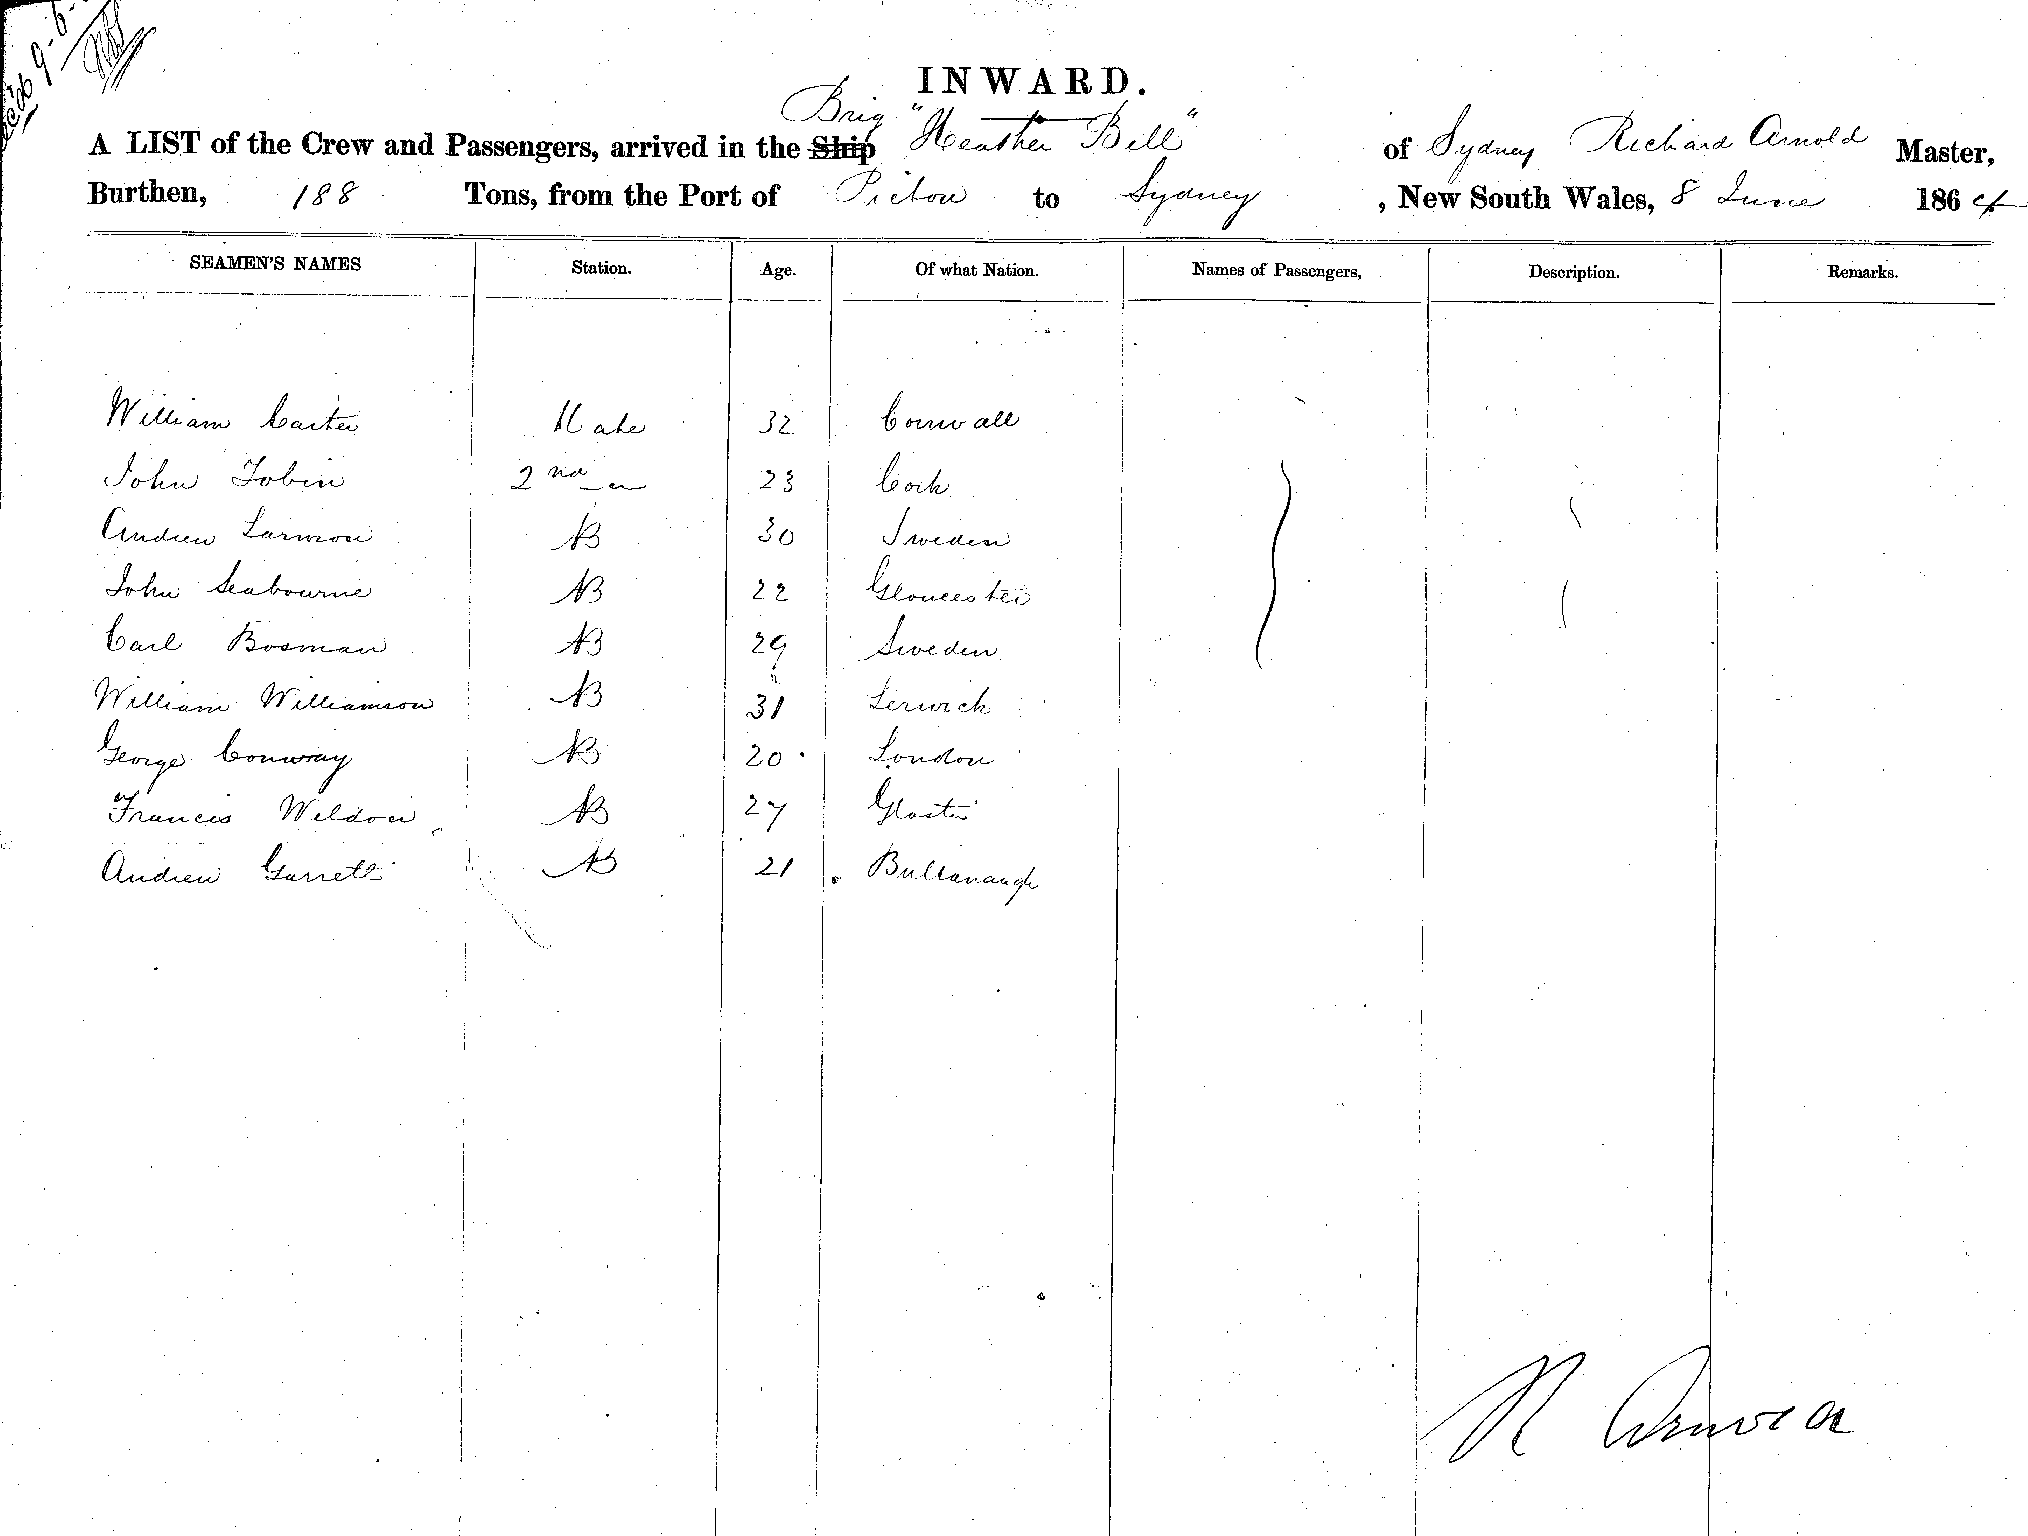 INWARD.
Brig "Heather Bell"
A LIST of the Crew and Passengers, arrived in the Ship of Sydney Richard Arnold Master,
Burthen, 188 Tons, from the Port of Picton to Sydney, New South Wales, 8 June 1864
SEAMEN'S NAMES Station. Age. Of what Nation. Names of Passengers, Description. Remarks.
William Carter Mate 32 Cornwall
John Tobin 2nd 23 Cork
Andrew 30 Sweden
John Seabourne AB 22 Gloucester
Carl Bosman AB 29 Sweden
William Williamson AB 31 Lerwick
George Conway AB 20 London
Francis Weldon AB 27 Gloster
Andrew Garrett AB 21
R Arnold